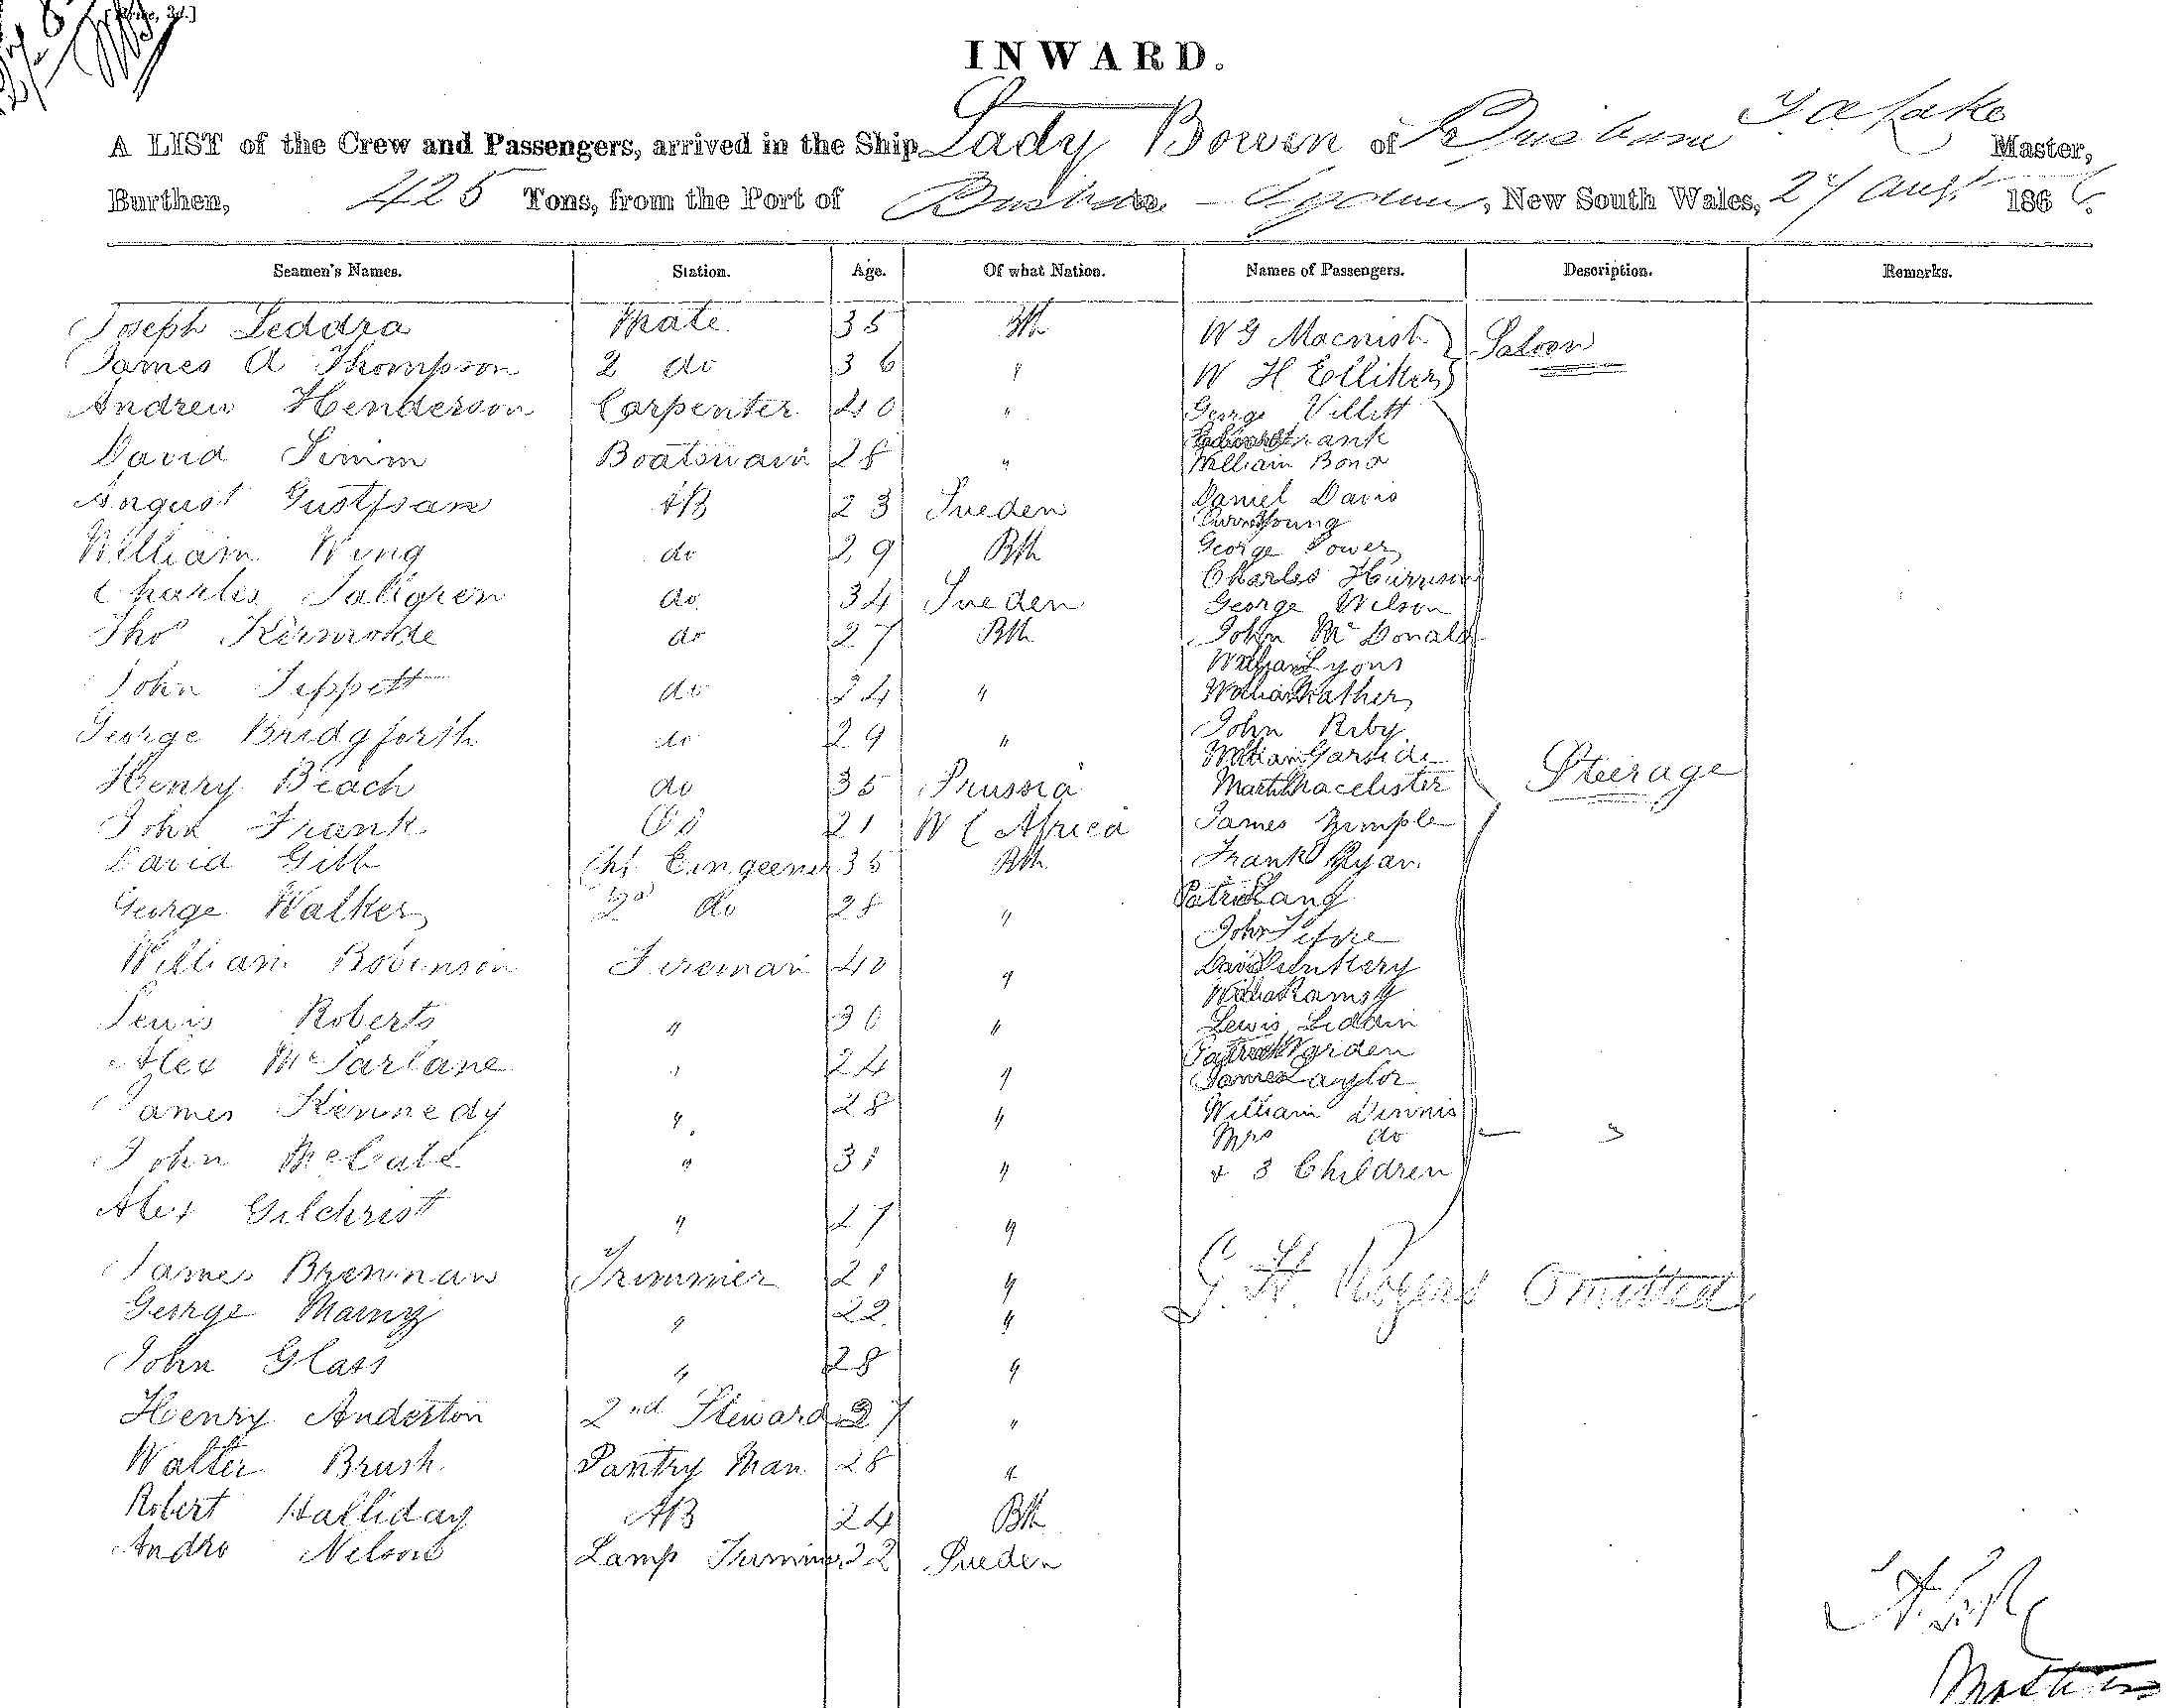 [Price, 3d.]
INWARD.
A LIST of the Crew and Passengers, arrived in the Ship Lady Bowen of Brisbane T. A. Lake Master,
Burthen, 425 Tons, from the Port of Brisbane to Sydney, New South Wales, 27 Augt 1866.
Seamen's Names. Station. Age. Of what Nation. Names of Passengers. Description. Remarks.
Joseph Leddra Mate 35 Bth W G Macnish Saloon
James A Thompson 2 do 36 " W H Elliker
Andrew Henderson Carpenter 40 " George Villett
David Simm Boatswain 28 " Frank
William Bond
August Gustfsan AB 23 Sueden Daniel Davis
Young
William Wing do 29 Bth George Power
Charles Harrison
Charles Saligren do 34 Sueden George Wilson
Thos do 27 Bth John McDonald
William Lyons
John Tippett do 24 " William Mather
George Bridgforth do 29 " John Riby
William Garside
Henry Beach do 35 Prussia Martin Macelister Steerage
John Frank OS 21 W C Africa James Zimple
David Gibb Chf Eingeener 35 Bth Frank Ryan
George Walker 2nd do 28 " Patrick Lang
John
William Robinson Fireman 40 " David Dunkery
William Ramsy
Lewis Roberts " 30 " Lewis Liddin
Alex McFarlane " 24 " Patrick Warden
James Taylor
James Kennedy " 28 " William Dinnis
Mrs do
John McCale " 31 " + 3 Children
Alex Gilchrist " 27 "
James Brennan Trimmer 21 " G. H. Rogers Omitted
George Maing " 22 "
John Glass " 28 "
Henry Anderton 2nd Steward 27 "
Walter Brush Pantry Man 28 "
Robert Halliday AB 24 Bth
Andro Nelson Lamp Trimmer 22 Sueden
Master